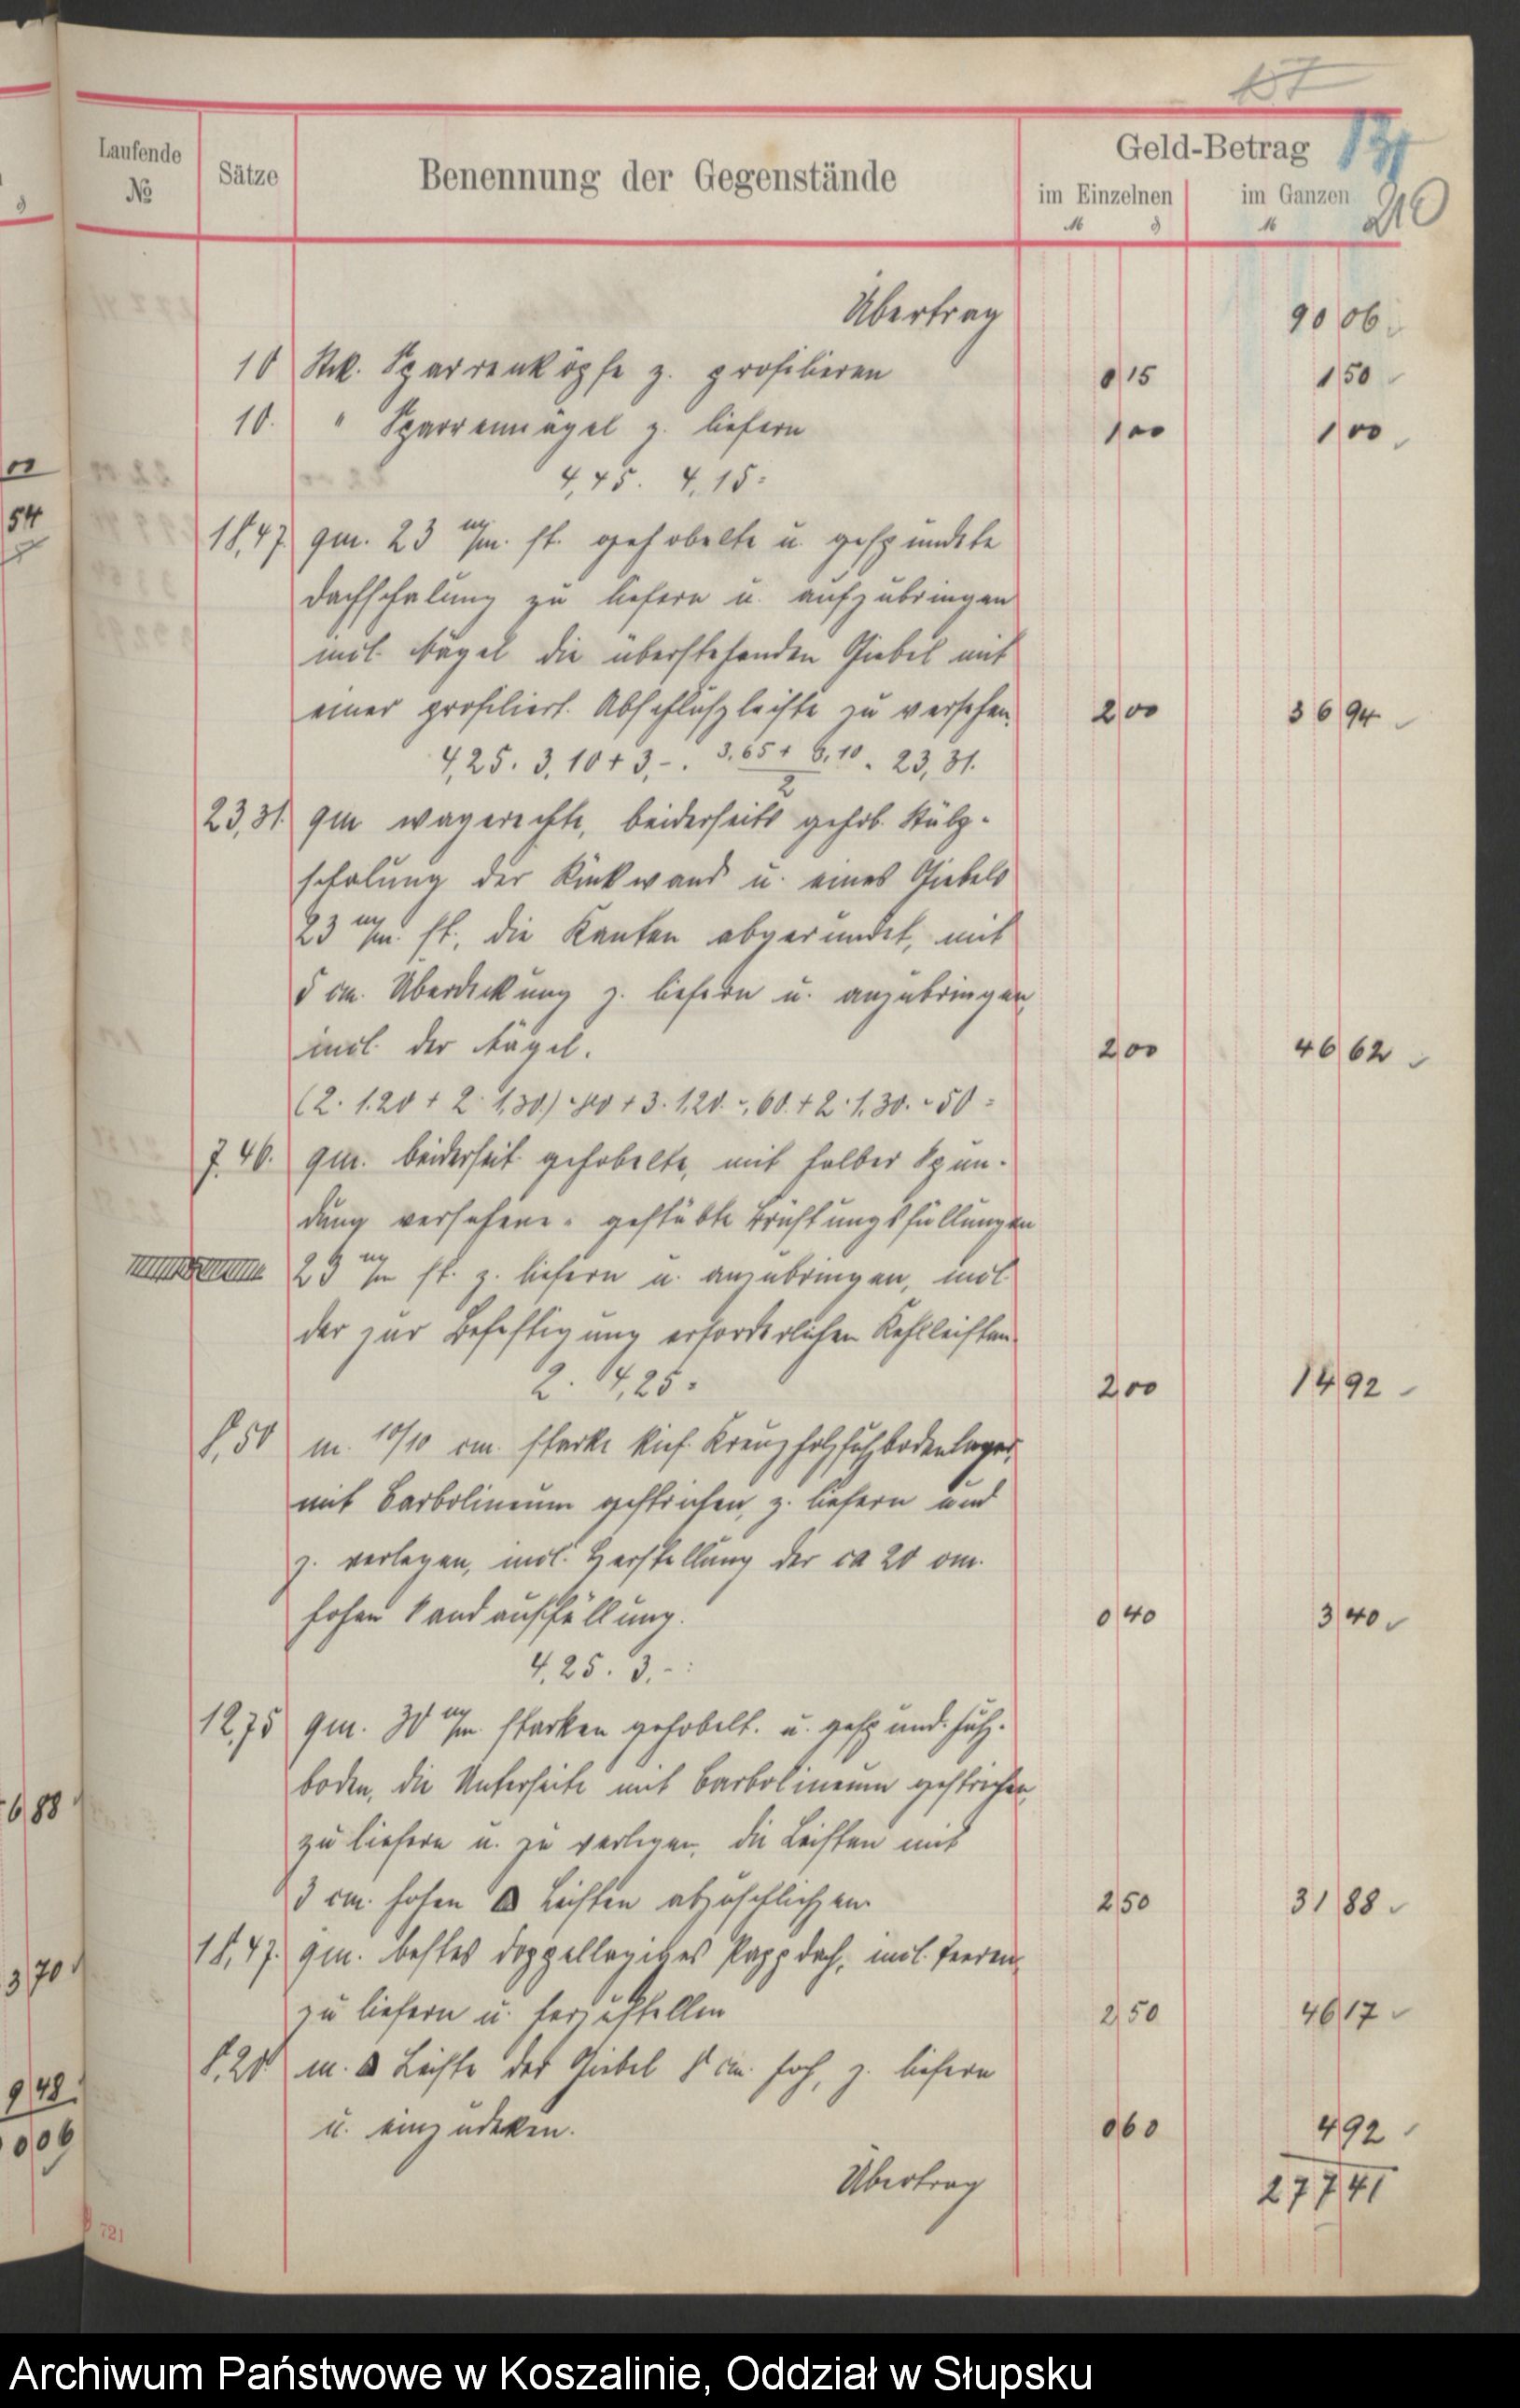 137
131
210
Laufende
№
Sätze
Benennung der Gegenstände
Geld-Betrag
im Einzelnen
im Ganzen
Übertrag 90 06
10 Stck. Sparrenköpfe z. profilieren 0 15 1 50
10. " Sparrennägel z. liefern 1 00 1 00
4,45. 4,15=
18,47. qm. 23 m/m. st. gehobelte u. gespundete
Dachschalung zu liefern u. aufzubringen
incl. Nägel die überstehenden Giebel mit
einer profiliert. Abschlußleiste zu versehen. 2 00 36 94
4,25. 3,10 + 3,-. 3,65 + 3,10 / 2 = 23,31.
23,31. qm wagerechte, beiderseits gehob. Stülp-
schalung der Rückwand u. eines Giebels
23 m/m. st., die Kanten abgerundet, mit
5 cm. Überdeckung z. liefern u. anzubringen,
incl. der Nägel. 2 00 46 62
(2. 1.20 + 2. 1,30) + 3. 1,20. -,60. + 2. 1.30. -50 =
7.46. qm. beiderseit. gehobelte, mit halber Spun-
dung versehene. gestäbte Brüstungsfüllungen
23 m/m st. z. liefern u. anzubringen, incl.
der zur Befestigung erforderlichen Kehlleisten. 2 00 14 92
2. 4,25 =
8,50 m. 10/10 cm. starke kief. Kreuzholzfußbodenlager,
mit Carbolineum gestrichen, z. liefern und
z. verlegen, incl. Herstellung der ca 20 cm.
hohen Sandauffüllung. 0 40 3 40
4,25. 3,-=
12,75 qm. 30 m/m. starken gehobelt. u. gespund. Fuß-
boden, die Unterseite mit Carbolineum gestrichen,
zu liefern u. zu verlegen, die Leisten mit
3 cm. hohen Leisten abzuschließen. 2 50 31 88
18,47. qm. bestes doppellagiges Pappdach, incl. Teeren,
zu liefern u. herzustellen 2 50 46 17
8.20 m. Leiste der Giebel 8 cm. hoch, z. liefern
u. einzudecken. 0 60 4 92
Übertrag 277 41
54
6 88
3 70
9 48
0 06
721
Archiwum Państwowe w Koszalinie, Oddział w Słupsku